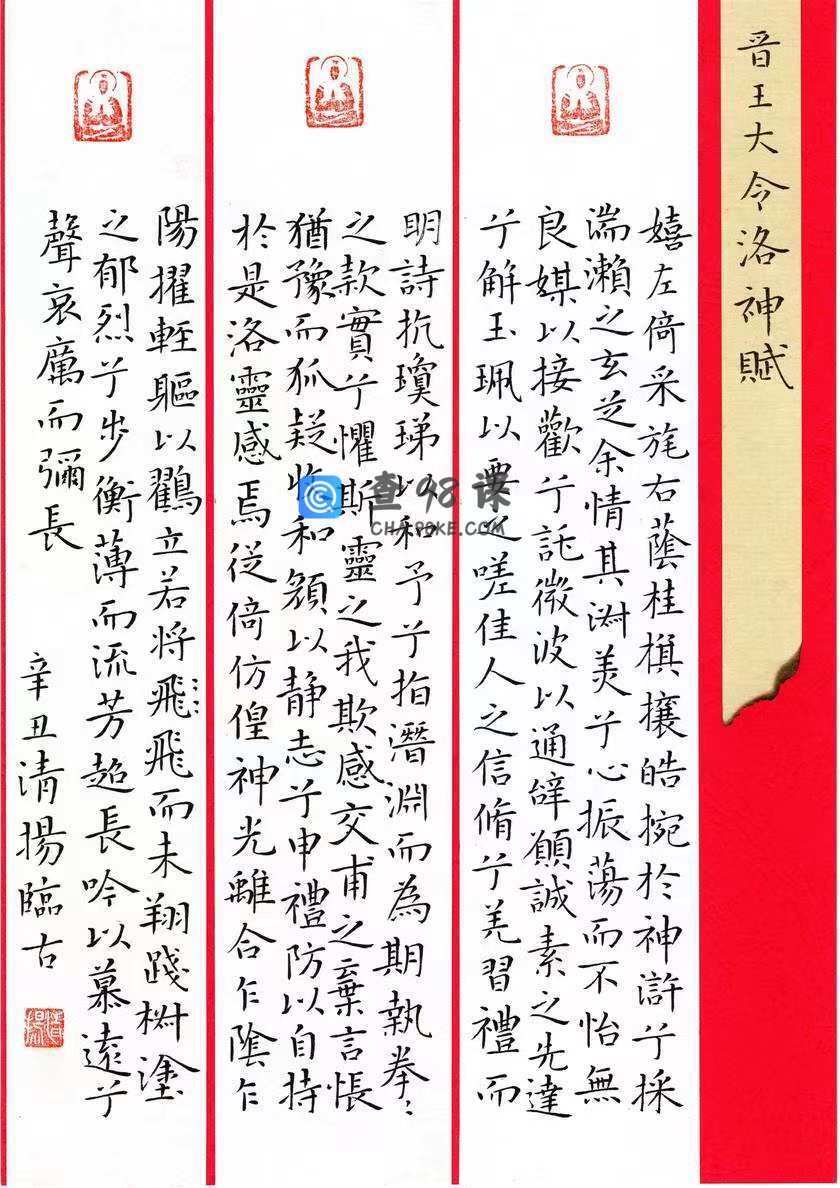 晋王大令洛神賦
嬉左倚采旄右蔭桂棋攘皓捥於神滸兮採
湍瀨之玄芝余情其淵美兮心振蕩而不怡無
良媒以接歡兮託微波以通辝願誠素之先達
兮解玉珮以要之嗟佳人之信脩兮羌習禮而
明詩抗瓊珶以和予兮指潛淵而為期執拳〻
之款實兮懼斯靈之我欺感交甫之棄言悵
猶豫而狐疑收和顏以静志兮申禮防以自持
於是洛靈感焉徙倚仿偟神光離合乍陰乍
陽擢輕軀以鶴立若將飛飛而未翔踐椒塗
之郁烈兮步衡薄而流芳超長吟以慕遠兮
聲哀厲而彌長
辛丑清揚臨古
查98课
CHA98KE.COM